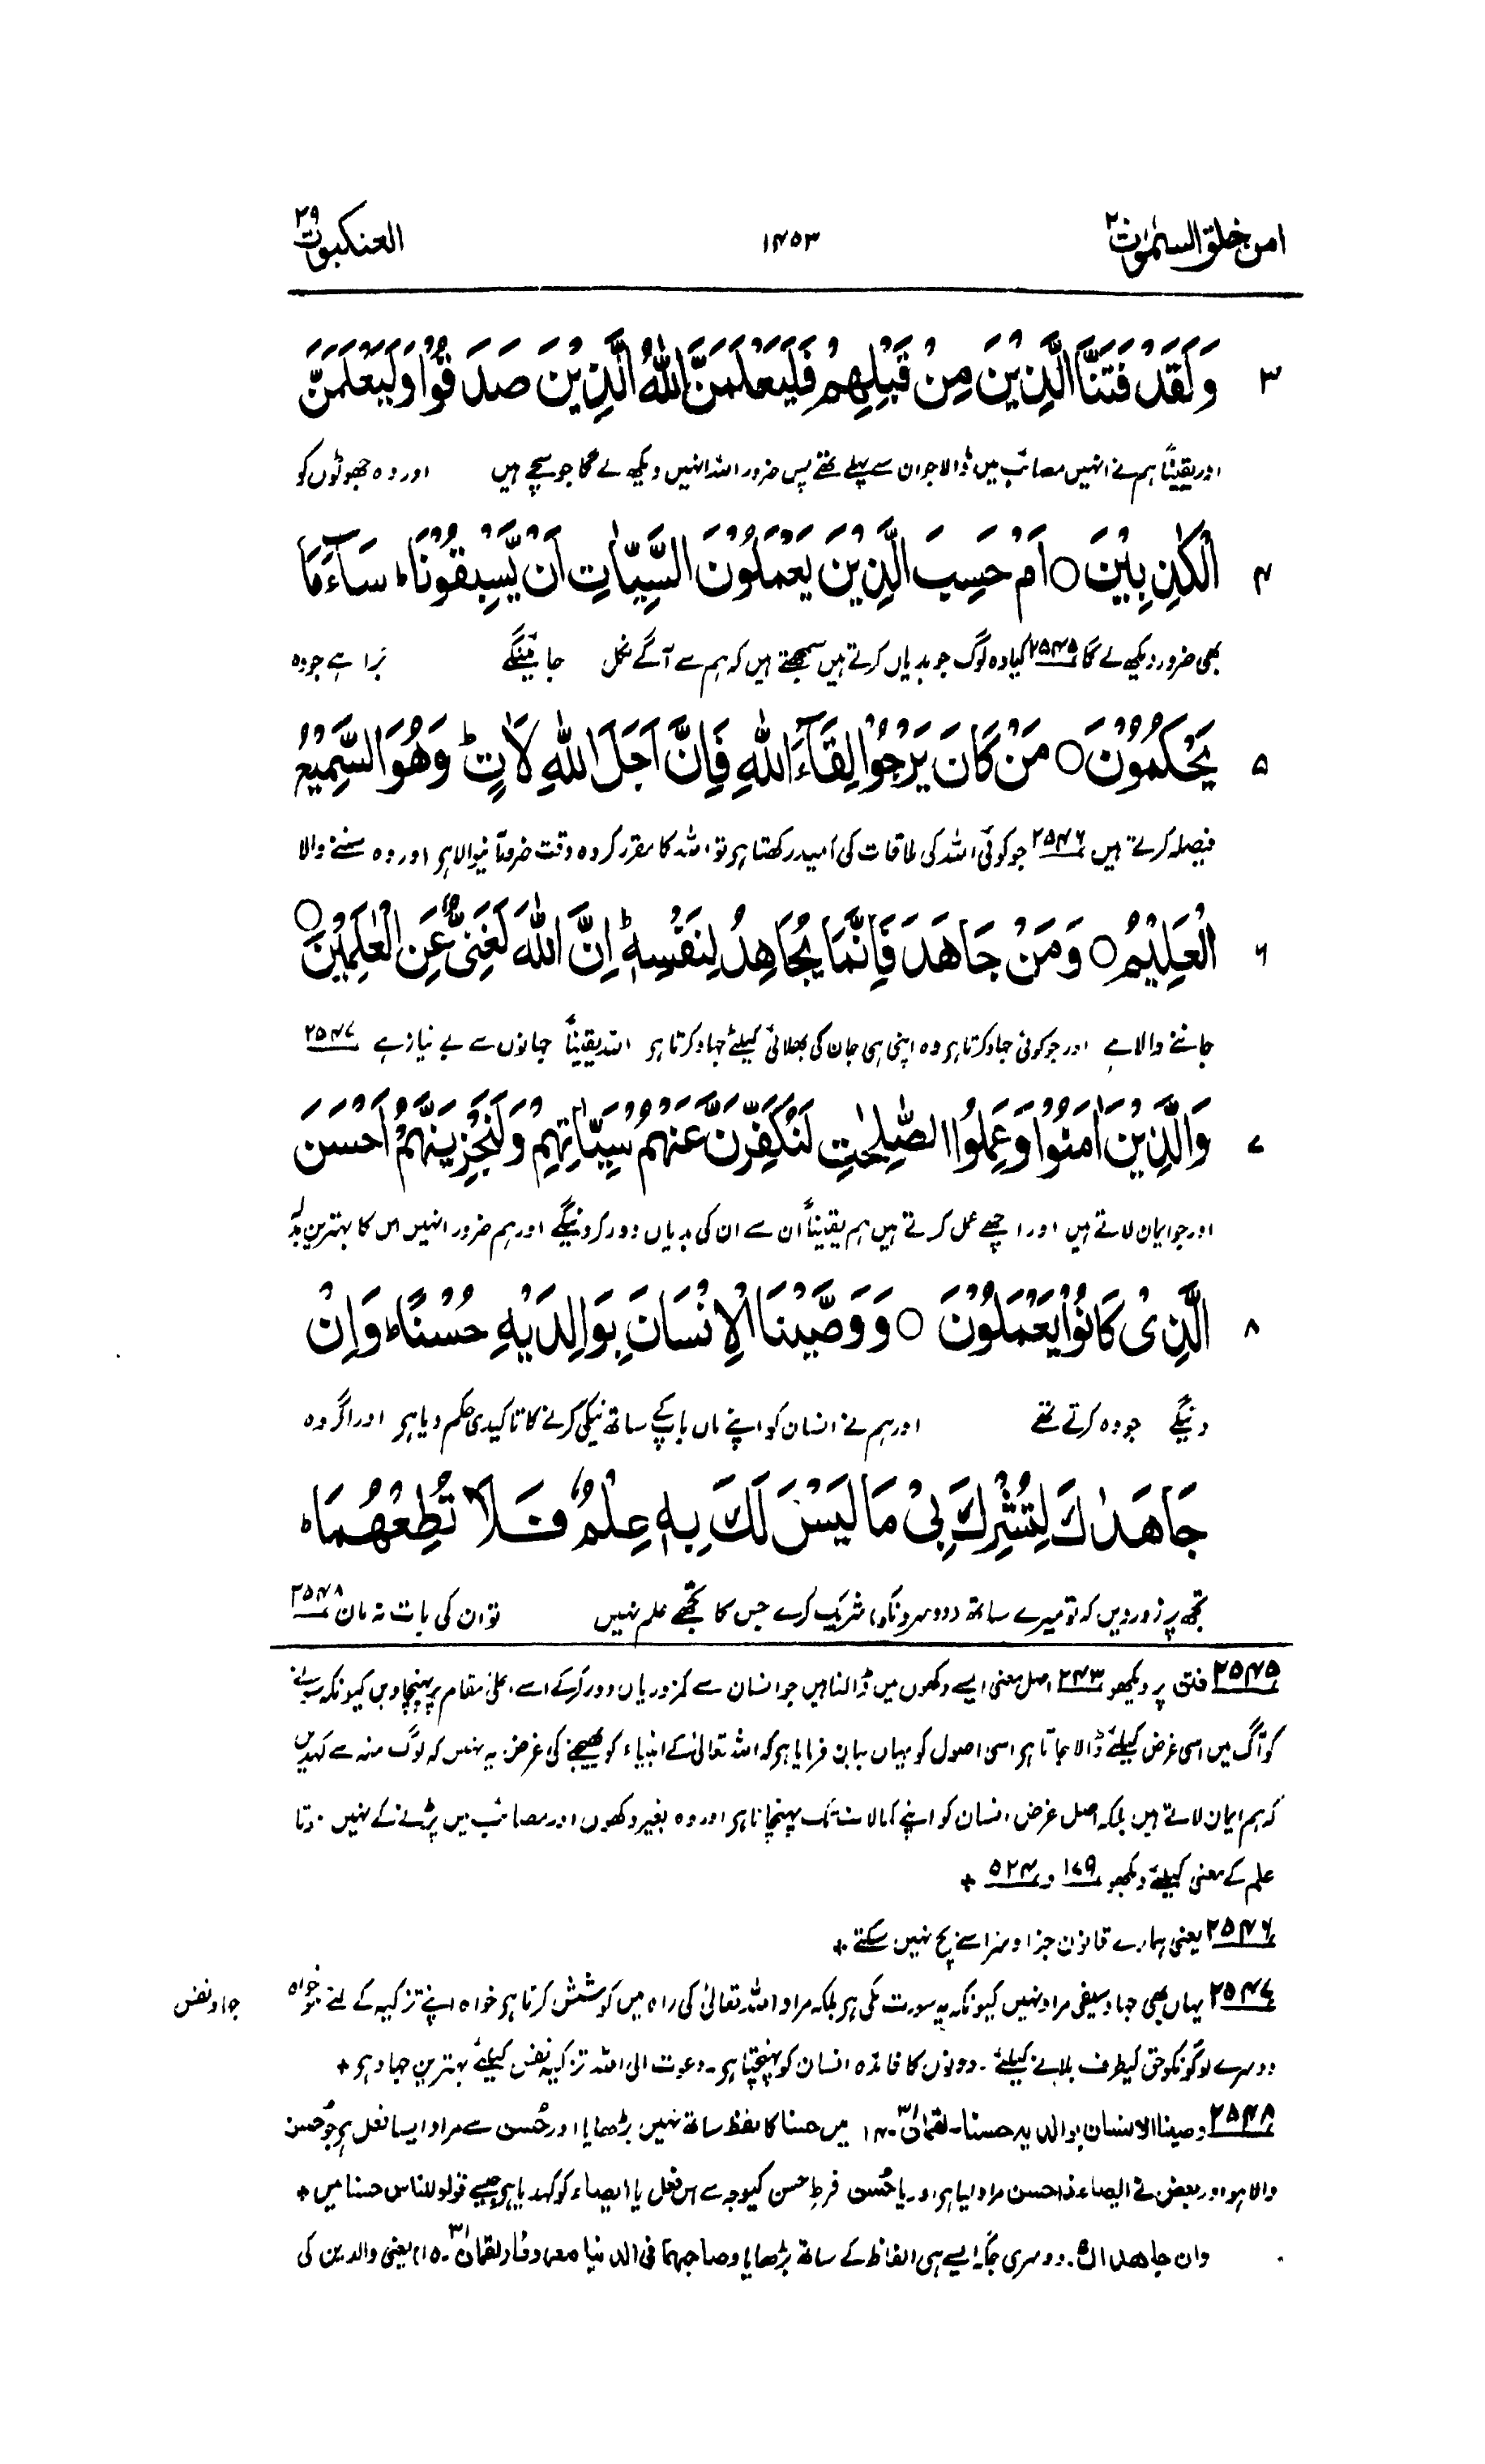 امن خلق السمٰوٰت ۲۰ ۱۴۵۳ العنکبوت ۲۹
۳ وَلَقَدْ فَتَنَّا الَّذِيْنَ مِنْ قَبْلِهِمْ فَلَيَعْلَمَنَّ اللّٰهُ الَّذِيْنَ صَدَقُوْا وَلَيَعْلَمَنَّ
اور یقیناً ہم نے انہیں مصائب میں ڈالا جو ان سے پہلے تھے پس ضرور اللہ انہیں دیکھ لے گا جو سچے ہیں اور وہ جھوٹوں کو
۴ الْكٰذِبِيْنَ ○ اَمْ حَسِبَ الَّذِيْنَ يَعْمَلُوْنَ السَّيِّاٰتِ اَنْ يَّسْبِقُوْنَا ؕ سَآءَ مَا
بھی ضرور دیکھ لے گا ۲۵۴۵ کیا وہ لوگ جو بدیاں کرتے ہیں سمجھتے ہیں کہ ہم سے آگے نکل جائینگے بُرا ہے جو وہ
۵ يَحْكُمُوْنَ ○ مَنْ كَانَ يَرْجُوْا لِقَآءَ اللّٰهِ فَاِنَّ اَجَلَ اللّٰهِ لَاٰتٍ ؕ وَهُوَ السَّمِيْعُ
فیصلہ کرتے ہیں ۲۵۴۶ جو کوئی اللہ کی ملاقات کی اُمید رکھتا ہو تو اللہ کا مقرر کردہ وقت ضرور آنیوالا ہو اور وہ سننے والا
۶ الْعَلِيْمُ ○ وَمَنْ جَاهَدَ فَاِنَّمَا يُجَاهِدُ لِنَفْسِهٖ ؕ اِنَّ اللّٰهَ لَغَنِيٌّ عَنِ الْعٰلَمِيْنَ ○
جاننے والا ہے اور جو کوئی جہاد کرتا ہو وہ اپنی ہی جان کی بھلائی کیلئے جہاد کرتا ہو اللہ یقیناً جہانوں سے بے نیاز ہے ۲۵۴۷
۷ وَالَّذِيْنَ اٰمَنُوْا وَعَمِلُوا الصّٰلِحٰتِ لَنُكَفِّرَنَّ عَنْهُمْ سَيِّاٰتِهِمْ وَلَنَجْزِيَنَّهُمْ اَحْسَنَ
اور جو ایمان لاتے ہیں اور اچھے عمل کرتے ہیں ہم یقیناً اُن سے ان کی بدیاں دور کردینگے اور ہم ضرور انہیں اس کا بہترین بدلہ
۸ الَّذِيْ كَانُوْا يَعْمَلُوْنَ ○ وَوَصَّيْنَا الْاِنْسَانَ بِوَالِدَيْهِ حُسْنًا ؕ وَاِنْ
دینگے جو وہ کرتے تھے اور ہم نے انسان کو اپنے ماں باپ کے ساتھ نیکی کرنے کا تاکیدی حکم دیا ہو اور اگر وہ
جَاهَدٰكَ لِتُشْرِكَ بِيْ مَا لَيْسَ لَكَ بِهٖ عِلْمٌ فَلَا تُطِعْهُمَا ؕ
تجھ پر زور دیں کہ تو میرے ساتھ (دوسروں کو) شریک کرے جس کا تجھے علم نہیں تو ان کی بات نہ مان ۲۵۴۸
۲۵۴۵ فتن پر دیکھو ۲۴۳ اصل معنی ایسے دکھوں میں ڈالنا ہیں جو انسان سے کمزوریاں دور کرکے اسے اعلیٰ مقام پر پہنچا دیں کیونکہ سونے
کو آگ میں اسی غرض کیلئے ڈالا جاتا ہو اسی اصول کو یہاں بیان فرمایا ہو کہ اللہ تعالیٰ کے انبیاء کو بھیجنے کی غرض یہ نہیں کہ لوگ منہ سے کہدیں
کہ ہم ایمان لاتے ہیں بلکہ اصل غرض انسان کو اپنے کمالات تک پہنچانا ہو اور وہ بغیر دکھوں اور مصائب میں پڑنے کے نہیں ہوتا
علم کے معنی کیلئے دیکھو ۱۷۹ و ۵۲۴ +
۲۵۴۶ یعنی ہمارے قانون جزا و سزا سے بچ نہیں سکتے +
۲۵۴۷ یہاں بھی جہاد سیفی مراد نہیں کیونکہ یہ سورت مکی ہو بلکہ مراد اللہ تعالیٰ کی راہ میں کوشش کرتا ہو خواہ اپنے تزکیہ کے لئے ہو خواہ
جہاد نفس
دوسرے لوگوں کو حق کیطرف بلانے کیلئے۔ دونوں کا فائدہ انسان کو پہنچتا ہو۔ دعوت الی اللہ تزکیہ نفس کیلئے بہترین جہاد ہو +
۲۵۴۸ وصینا الانسان بوالدیہ حسنا۔ لقمان ۳۱۔ ۱۴ میں حسنا کا لفظ ساتھ نہیں بڑھایا اور حُسن سے مراد ایسا فعل ہو جو حُسن
والا ہو اور بعض نے ایصاء ذا حسن مراد لیا ہو اور یا حُسن فرطِ حسن کیوجہ سے اس فعل یا ایصاء کو کہدیا ہو جیسے قولو للناس حسنا میں +
وان جاھداک۔ دوسری جگہ ایسے ہی الفاظ کے ساتھ بڑھایا وصاحبھما فی الدنیا معروفا (لقمان ۳۱۔ ۱۵) یعنی والدین کی